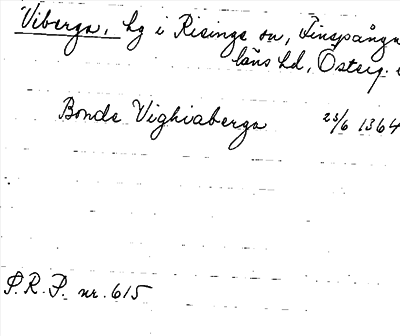 Viberga, hg i Risinge sn, Finspånga
läns hd, Österg.
Bonde Vighiaberga 23/6 1364
P.R.P. nr. 615